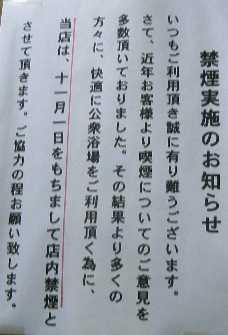 禁煙実施のお知らせ
いつもご利用頂き誠に有り難うございます。
さて、近年お客様より喫煙についてのご意見を
多数頂いておりました。その結果より多くの
方々に、快適に公衆浴場をご利用頂く為に、
当店は、十一月一日をもちまして店内禁煙と
させて頂きます。ご協力の程お願い致します。